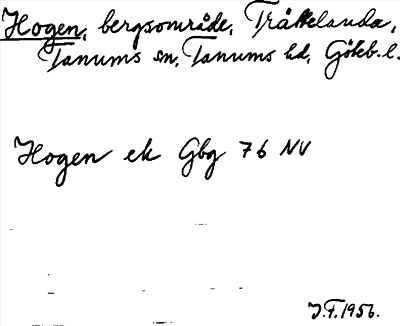 Hogen, bergsområde, Tråttelanda,
Tanums sn, Tanums hd, Göteb. l.
Hogen ek Gbg 76 NV
J.F. 1956.